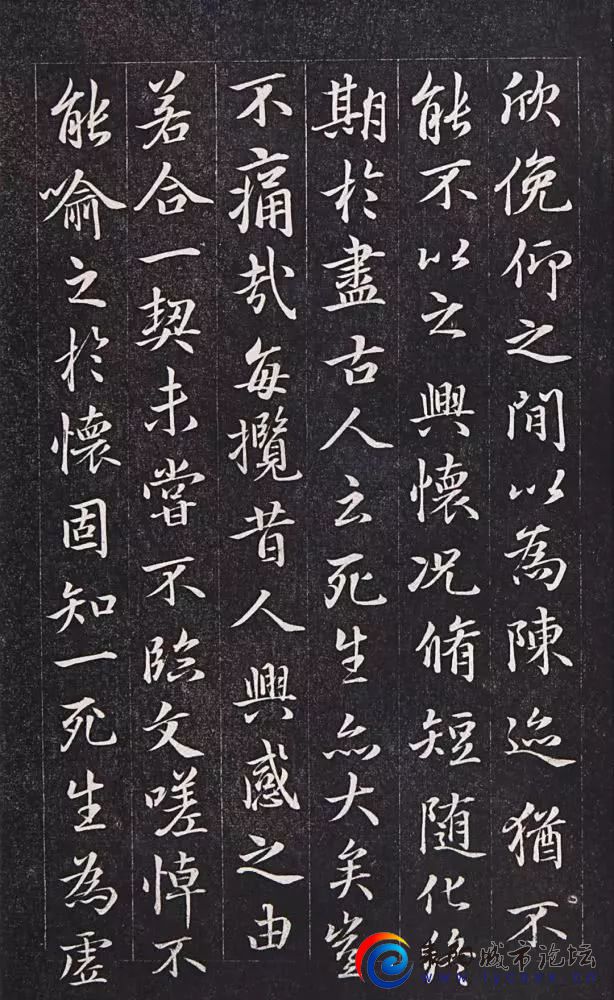 欣俛仰之閒以為陳迹猶不
能不以之興懷況脩短随化終
期於盡古人云死生亦大矣豈
不痛哉每攬昔人興感之由
若合一契未嘗不臨文嗟悼不
能喻之於懷固知一死生為虛
城市论坛